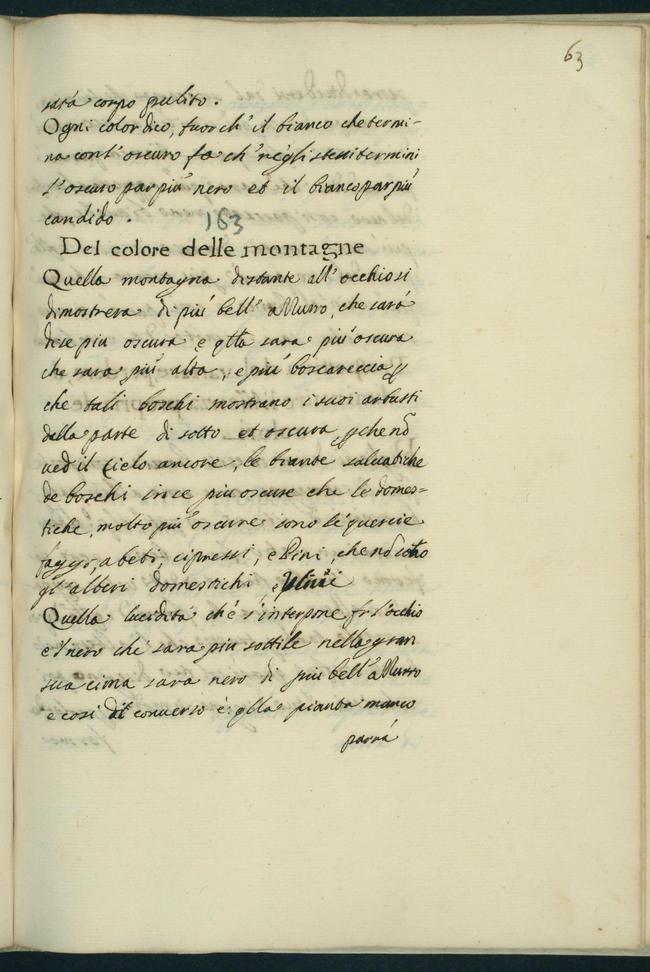 63
sarà corpo pulito.
Ogni color dico, fuor ch' il bianco che termi-
na con l' oscuro fa ch' negli stessi termini
l' oscuro par piu' nero et il bianco par piu'
candido.
163
Del colore delle montagne
Quella montagna distante all' occhio si
dimostrera di piu' bell' azzurro, che sarà
di se piu oscura e qlla sara piu' oscura
che sara piu' alta, e piu' boscareccia
che tali boschi mostrano i suoi arbusti
dalla parte di sotto et oscura
ued il Cielo ancore, le piante saluatiche
de boschi in se piu oscure che le domes-
tiche, molto piu' oscure sono le quercie
faggi, abeti, cipressi, e Pini, che
gl' alberi domestichi, e Uliui
Quella lucidità ch' s' interpone fr l' occhio
e 'l nero che sara piu sottile nella gran
sua cima sara nero di piu bell' azzurro
e cosi di conuerso è qlla pianta manco
parrà